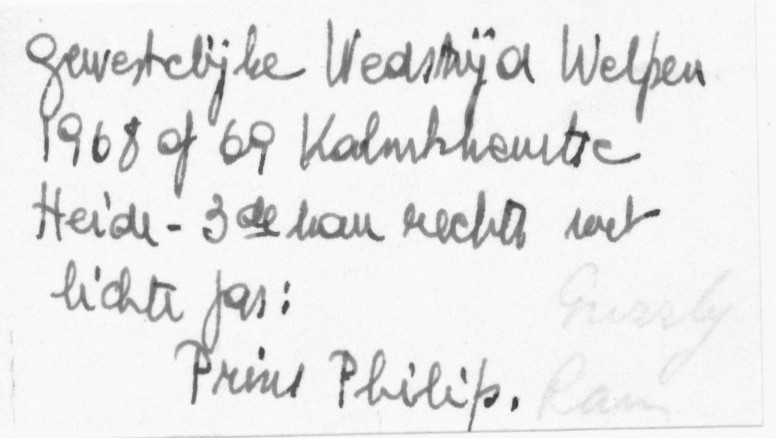 Gewestelijke Wedstrijd Welpen
1968 of 69 Kalmthoutse
Heide - 3de van rechts met
lichte jas:
Grizzly
Prins Philip.
Ram